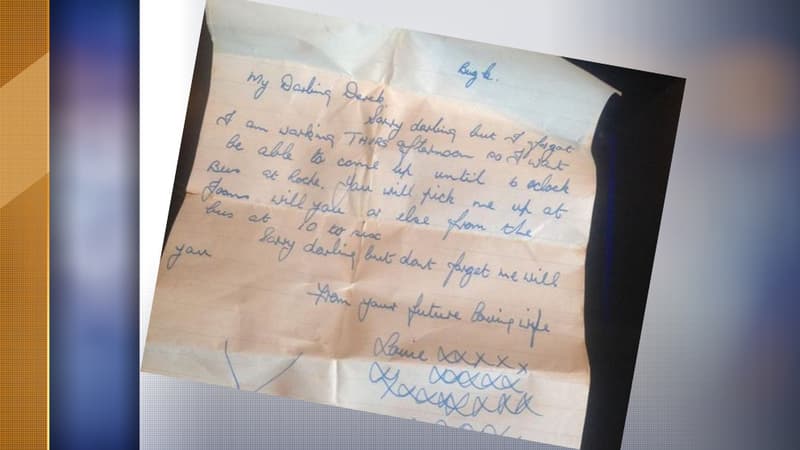 My Darling Derek
Sorry darling but I forgot
I am working THURS afternoon so I wont
be able to come up until 6 oclock
Bus at Rode. You will pick me up at
Joans will you or else from the
bus at 10 to six
Sorry darling but dont forget me will
you
From your future loving wife
Louie xxxxx